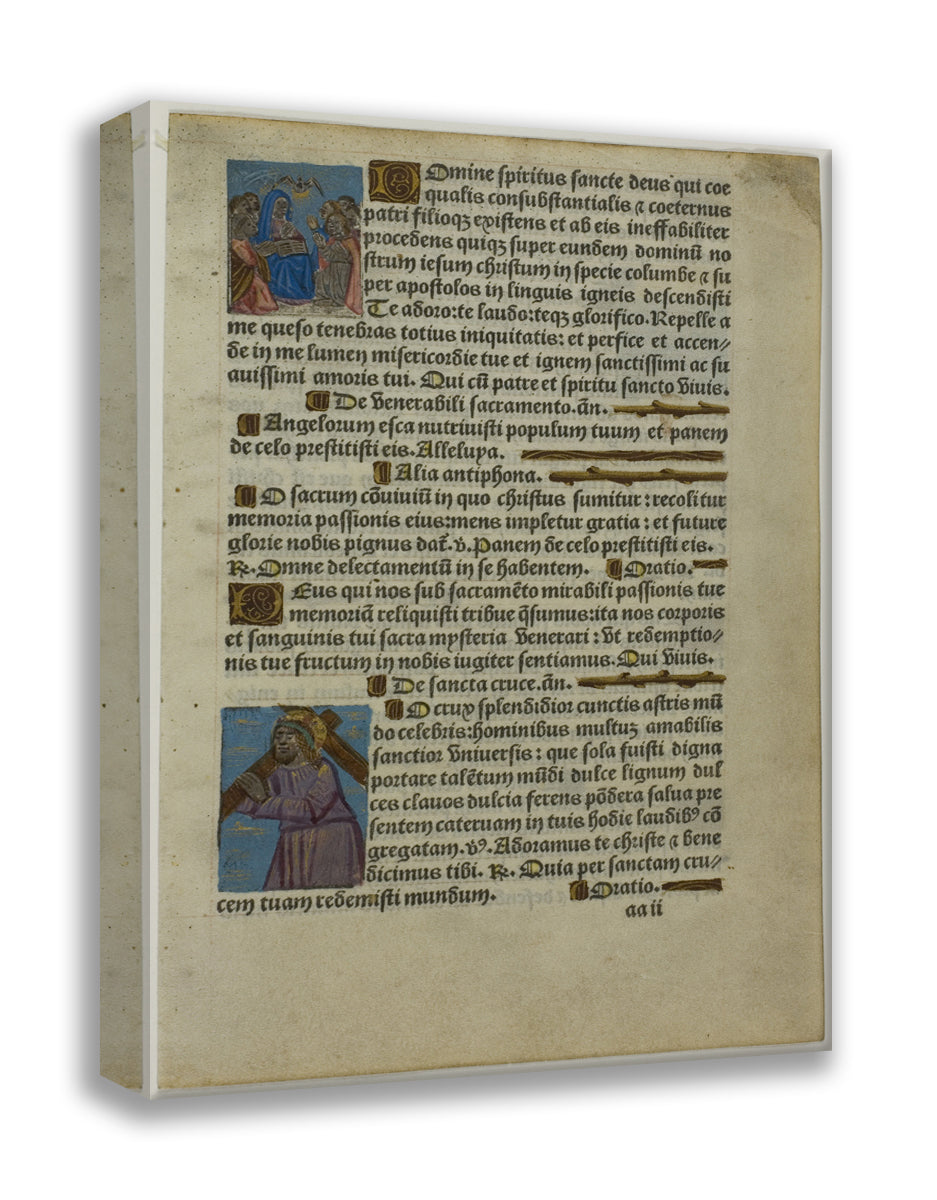 Domine spiritus sancte deus qui coe
qualis consubstantialis ⁊ coeternus
patri filioqꝫ existens et ab eis ineffabiliter
procedens quiqꝫ super eundem dominū no
strum iesum christum in specie columbe ⁊ su
per apostolos in linguis igneis descendisti
Te adoro: te laudo: teqꝫ glorifico. Repelle a
me queso tenebras totius iniquitatis: et perfice et accen⸗
de in me lumen misericordie tue et ignem sanctissimi ac su
auissimi amoris tui. Qui cū patre et spiritu sancto viuis.
De venerabili sacramento. añ.
Angelorum esca nutriuisti populum tuum et panem
de celo prestitisti eis. Alleluya.
Alia antiphona.
O sacrum cōuiuiū in quo christus sumitur: recolitur
memoria passionis eius: mens impletur gratia: et future
glorie nobis pignus dat̄. ℣. Panem de celo prestitisti eis.
℟. Omne delectamentū in se habentem. Oratio.
DEus qui nos sub sacramēto mirabili passionis tue
memoriā reliquisti tribue q̄sumus: ita nos corporis
et sanguinis tui sacra mysteria venerari: vt redemptio⸗
nis tue fructum in nobis iugiter sentiamus. Qui viuis.
De sancta cruce. añ.
O crux splendidior cunctis astris mū
do celebris: hominibus multuꝫ amabilis
sanctior vniuersis: que sola fuisti digna
portare talētum mūdi dulce lignum dul
ces clauos dulcia ferens pōdera salua pre
sentem cateruam in tuis hodie laudibꝰ cō
gregatam. ℣ꝰ. Adoramus te christe ⁊ bene
dicimus tibi. ℟. Quia per sanctam cru⸗
cem tuam redemisti mundum. Oratio.
aa ii